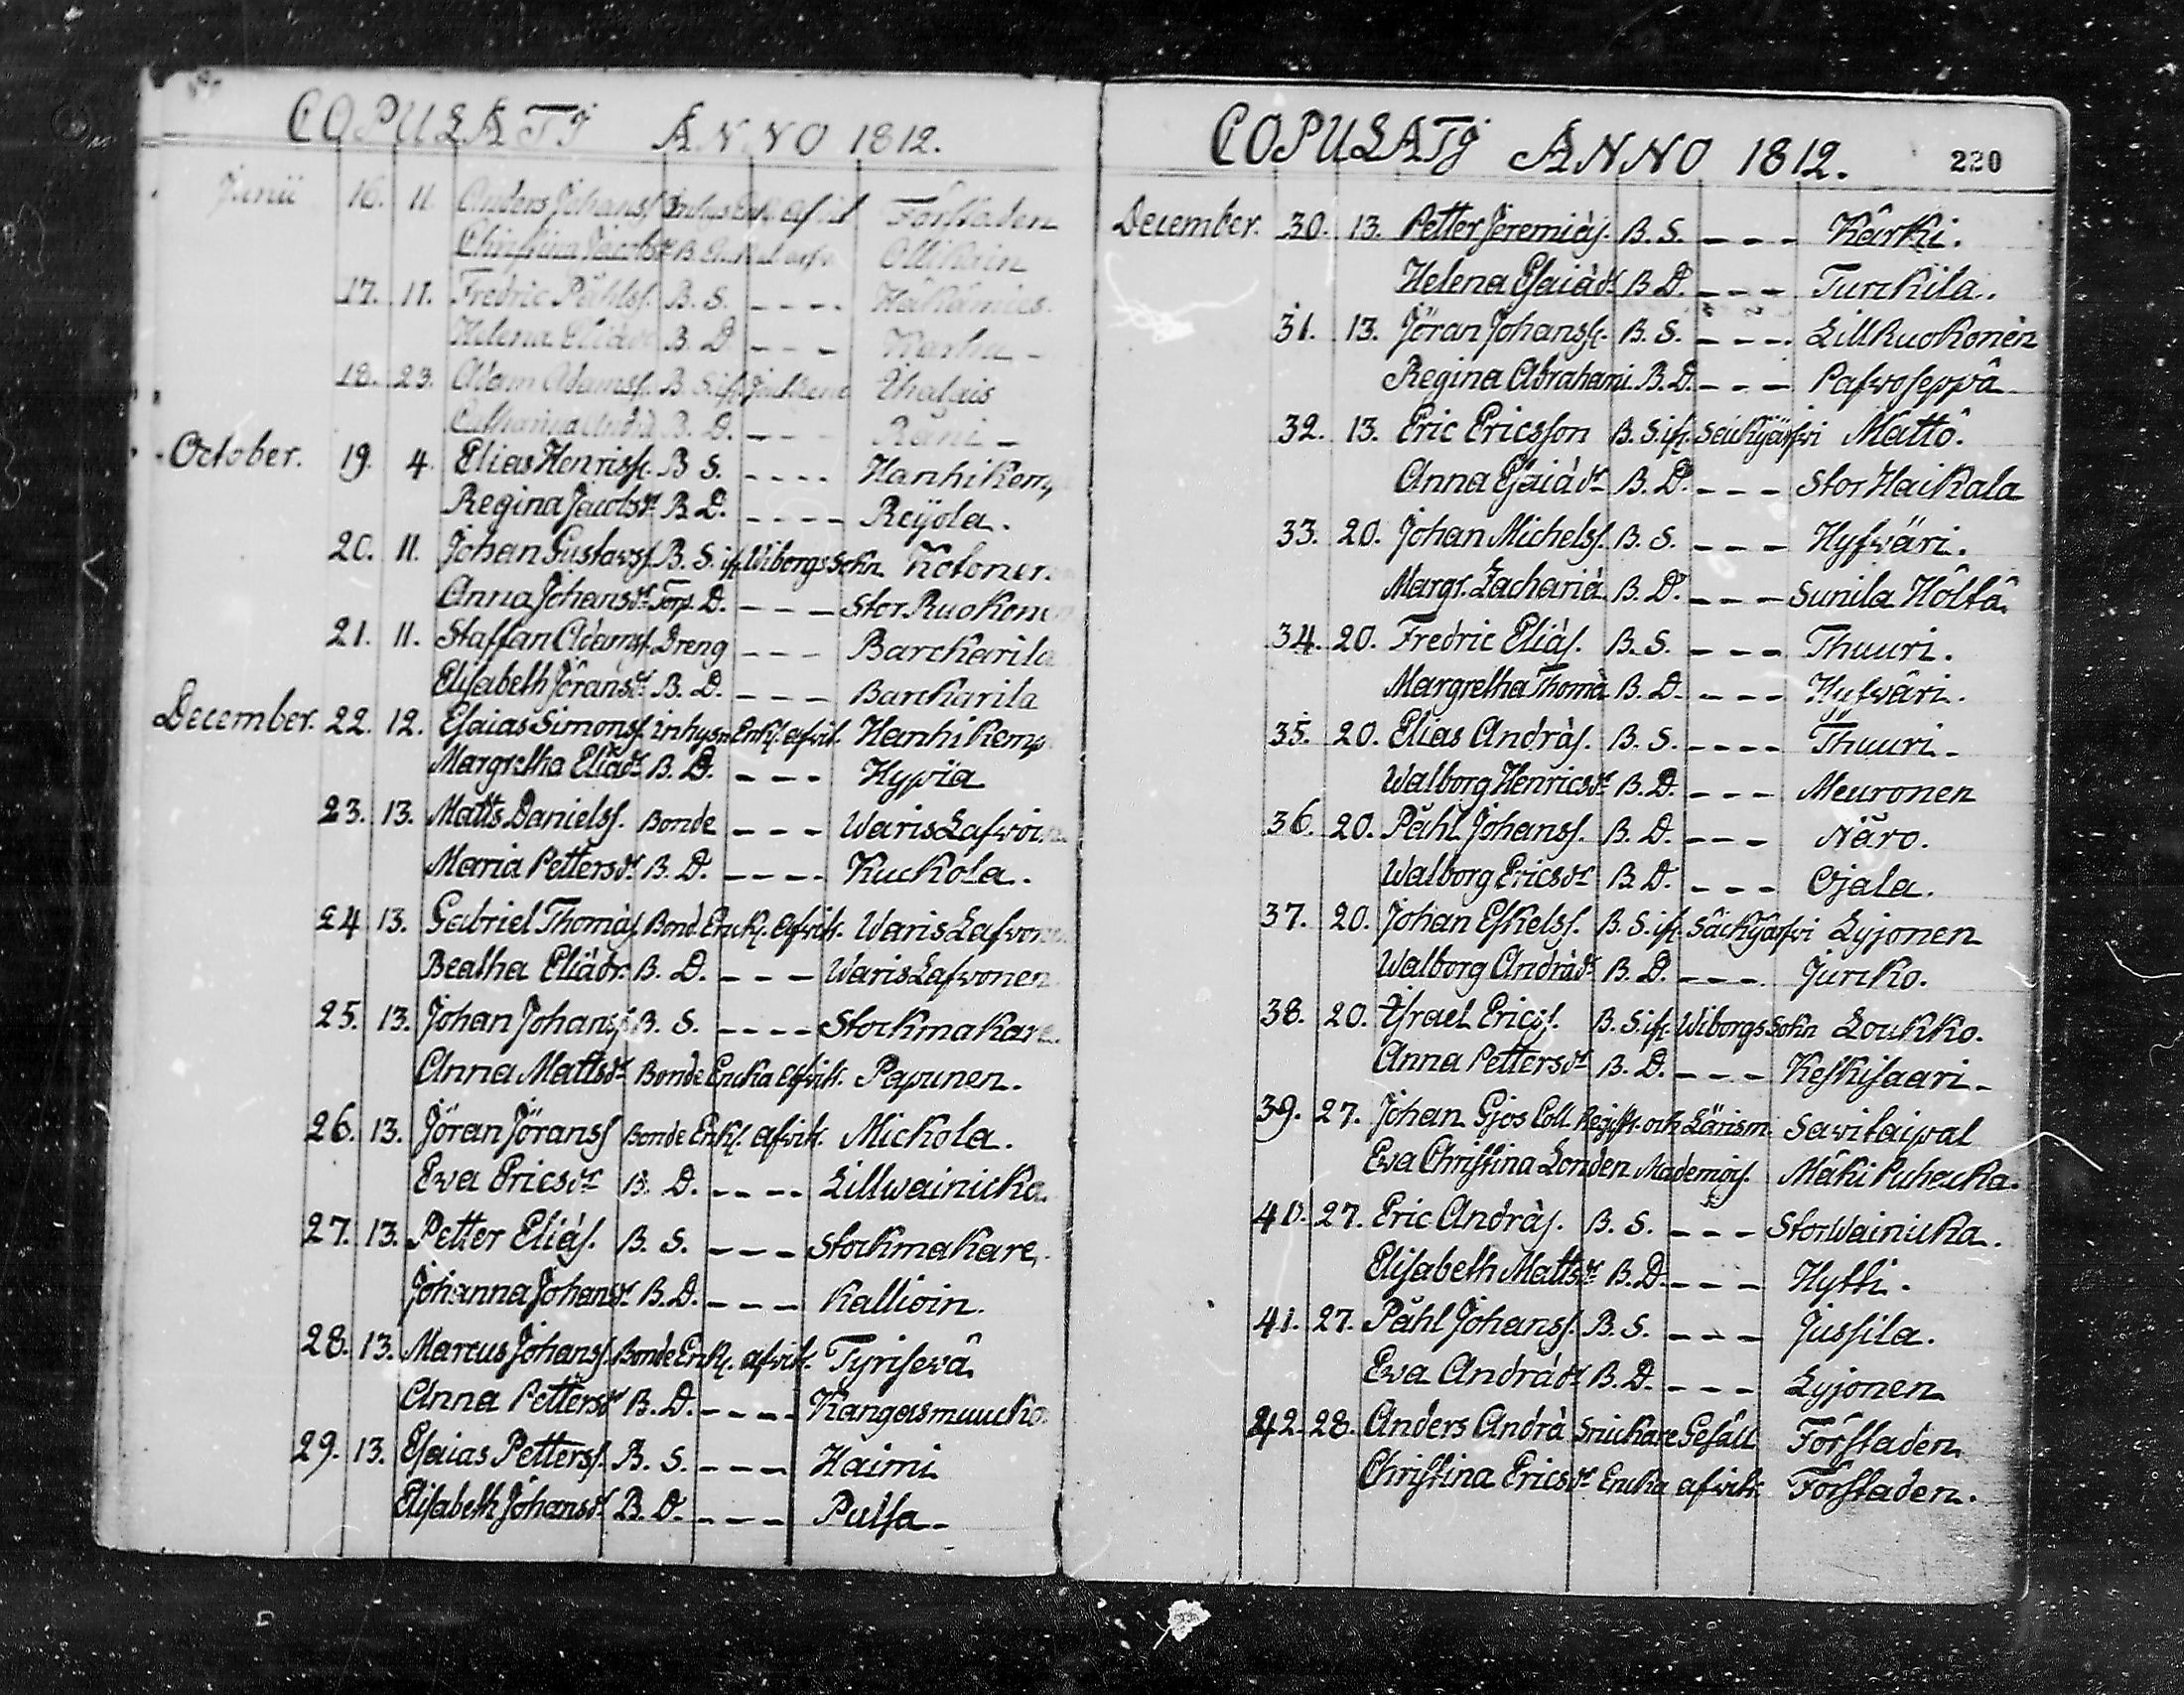 COPULATJ ANNO 1812.
Junii 16. 11. Anders Johanss. Förstaden
Christina Jacobsdr B. Ollikain
17. 11. Fredric Påhlss. B. S. ----
Helena Eliædr B. D. --- Karhu -
18. 23. Adam Adamss. B. S. ifr. Jäckene Thalais
Catharina Andrä B. D. --- Räni -
October. 19. 4. Elias Henricss. B S. ---- Hanhikemp
Regina Jacobsdr B. D. ---- Reijola.
20. 11. Johan Gustavss. B. S. ifr. Wiborgs Sokn. Kotoner.
Anna Johansdr Torp. D. --- Stor Ruokonen
21. 11. Staffan Adamss. Dreng --- Barckarila
Elisabeth Jöransdr B. D. --- Barckarila
December. 22. 12. Esaias Simonss. inhysn Enkl. afvit. Hanhikemp
Margretha Eliædr B. D. --- Hypiä
23. 13. Matts Danielss. Bonde --- Waris Lafvoin
Maria Pettersdr B. D. ---- Kuckola.
24 13. Gabriel Thomäs. Bond. Enckl. afvitt. Waris Lafvonen
Beatha Eliädr. B. D. --- Waris Lafvonen
25. 13. Johan Johanss. B. S. ---- Stockmakare
Anna Mattsdr Bonde Encka afvitt. Papunen.
26. 13. Jöran Jöranss Bonde Enkl. afvitt. Mickola.
Ewa Ericsdr B. D. ---- Lillwainicka.
27. 13. Petter Eliäs. B. S. --- Stockmakare.
Johanna Johansdr B. D. --- Kallioin.
28. 13. Marcus Johanss. Bonde Enkl. afvitt. Tyrisevä
Anna Pettersdr B. D. ---- Kangasmuucko
29. 13. Esaias Petterss. B. S. --- Haimi
Elisabeth Johansdr B. D. --- Pulsa -
COPULATJ ANNO 1812. 220
December. 30. 13. Petter Jeremiäs. B. S. --- Kärki.
Helena Esaiädr B. D. --- Turckila.
31. 13. Jöran Johanss. B. S. ---- Lill Ruokonen
Regina Abrahami B. D. --- Pafvoseppä
32. 13. Eric Ericsson B. S. ifr. Säckjärfvi Mattö.
Anna Esaiädr B. D. --- Stor Haikala
33. 20. Johan Michelss. B. S. --- Hyfväri.
Margr. Zachariä. B. D. --- Sunila Höltä.
34. 20. Fredric Eliäs. B. S. --- Thuuri.
Margretha Thomä B. D. --- Hyfväri.
35. 20. Elias Andräs. B. S. ---- Thuuri -
Walborg Henricsdr B. D. --- Meuronen
36. 20. Påhl Johanss. B. D. --- Näro.
Walborg Ericsdr B. D. --- Ojala.
37. 20. Johan Eskelss. B. S. ifr. Säckjärfvi Lyjonen
Walborg Andrädr B. D. --- Jurcko.
38. 20. Israel Ericss. B. S. ifr. Wiborgs Sokn Loukko.
Anna Pettersdr B. D. --- Keskisaari -
39. 27. Johan Gjos Coll. Regist. och Länsm. Savitaipal
Ewa Christina Londen Mademois. Mäki Puhacka.
40. 27. Eric Andräs. B. S. --- Stor Wainicka.
Elisabeth Mattsdr B. D. --- Hytti.
41. 27. Påhl Johanss. B. S. --- Jussila.
Ewa Andrädr B. D. --- Lyjonen
42. 28. Anders Andrä Snickare Gesäll Förstaden
Christina Ericsdr Encka afvitt. Förstaden.